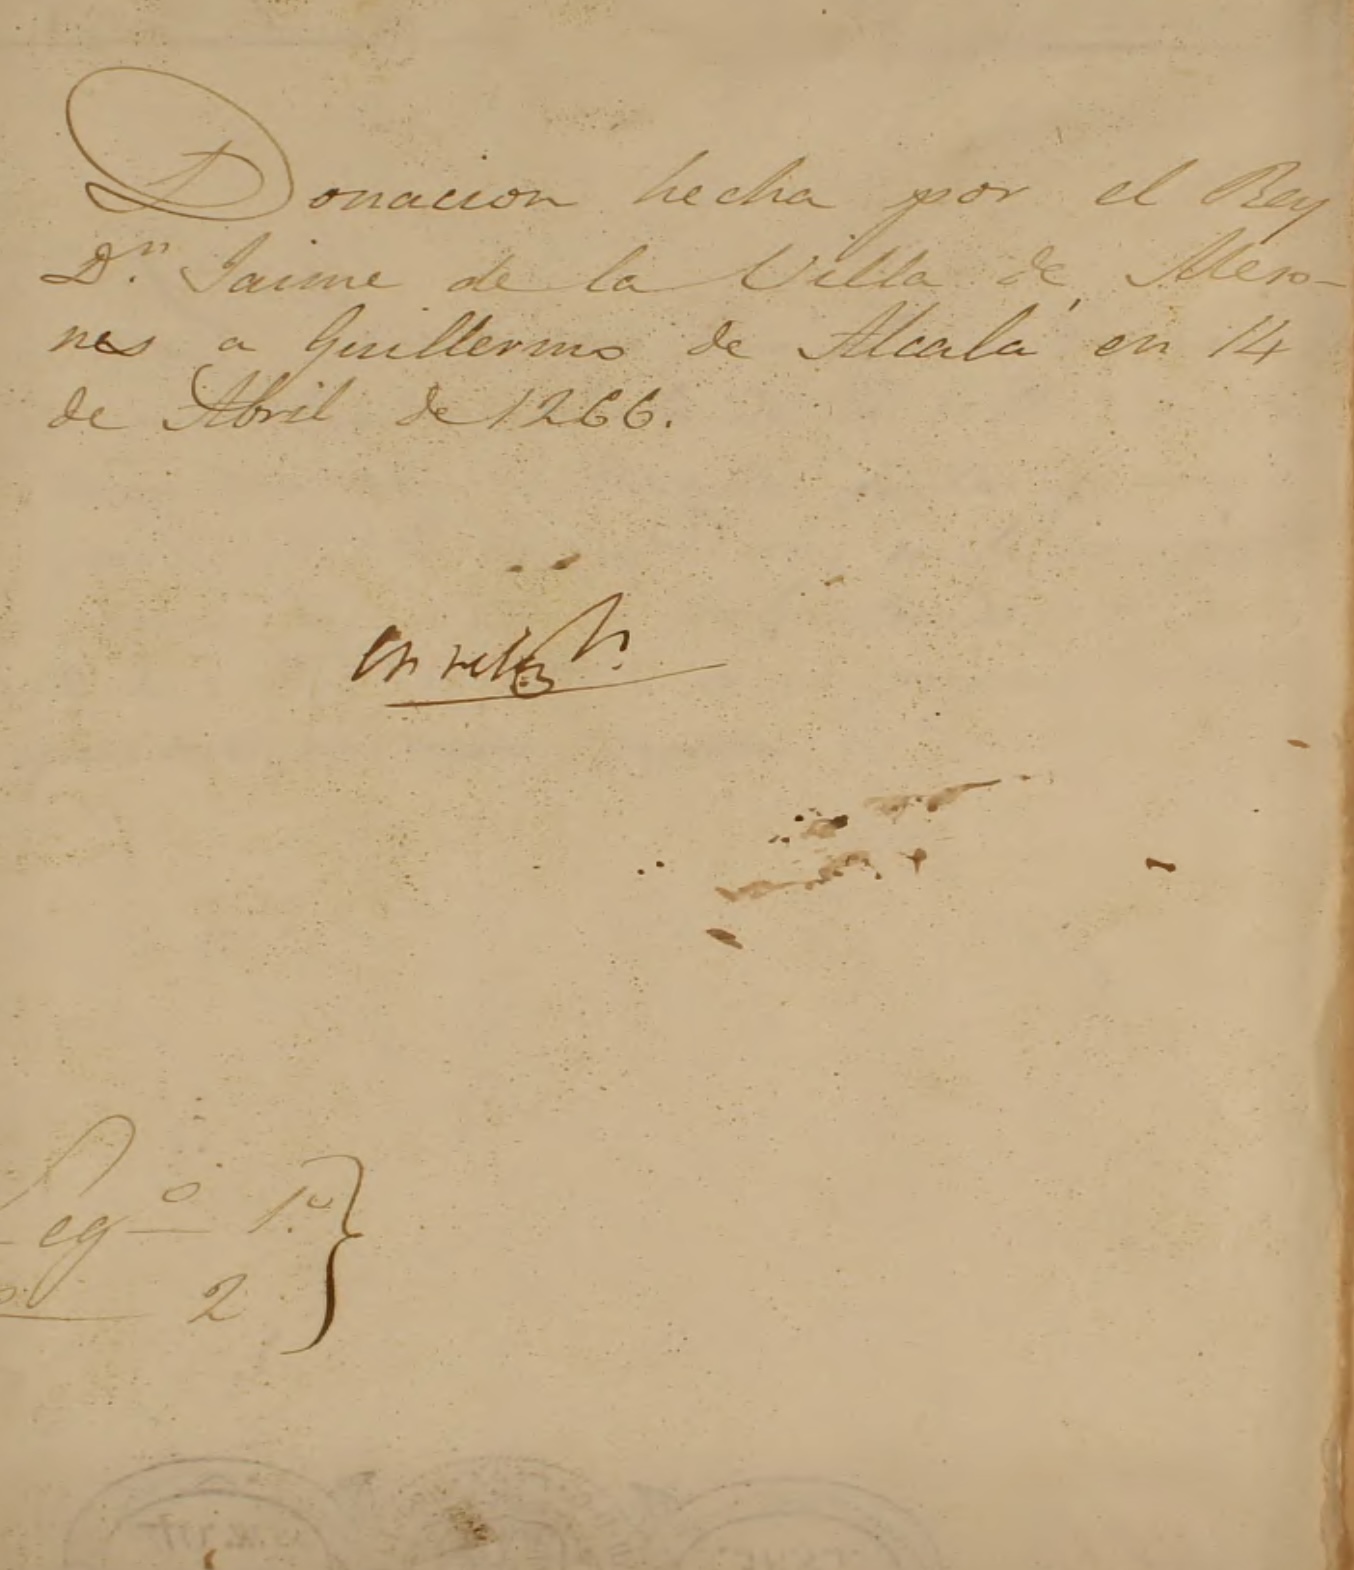 Donacion hecha por el Rey
D.ⁿ Jaime de la Villa de
nes a Guillermo de Alcalá en 14
de Abril de 1266.
Leg.º 1.º
2